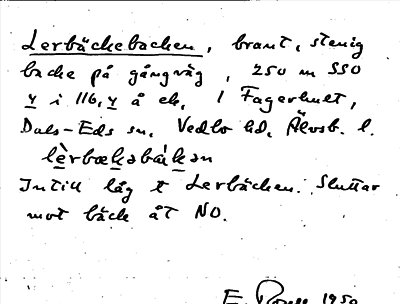 Lerbäckebacken, brant, stenig
backe på gångväg, 250 m SSO
y i 116, y å ek. 1 Fagerhult,
Dals-Eds sn, Vedbo hd, Älvsb. l.
lèrbækəbákən
Intill låg t Lerbäcken. Sluttar
mot bäck åt NO.
E. 1950